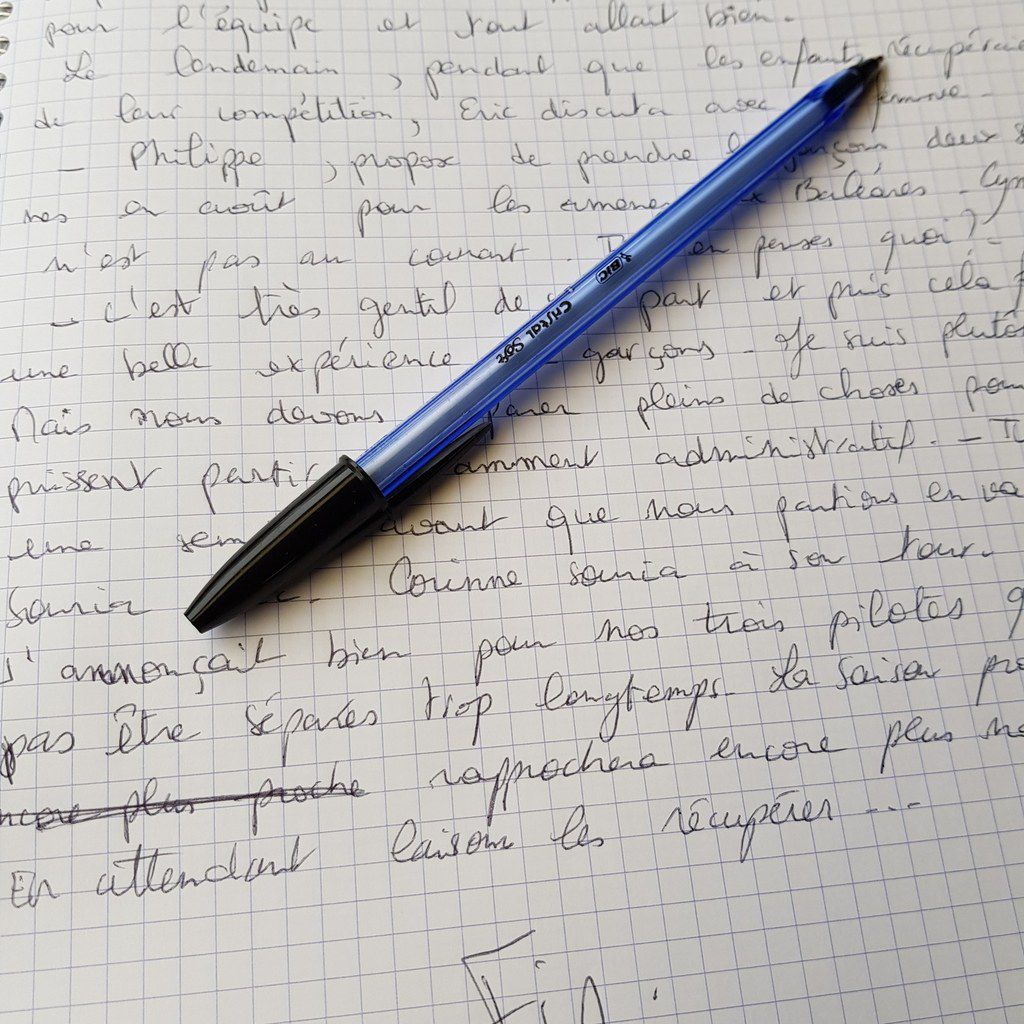 pour l'équipe et tout allait bien.
Le londemain, pendant que les enfants récupérai
de leur compétition, Eric discuta avec femme.
_ Philippe, propose de prendre garçons deux
nes en août pour les amener Baléares. Cyn
n'est pas au courant. en penses quoi ?
_ c'est très gentil de part et puis cela f
une belle expérience garçons. Je suis plutôt
Mais nous devons parer pleins de choses pour
puissent partir amment administratif. _ Tu
une sem avant que nous partions en va
Souria Corinne souria à son tour.
s'annonçait bien pour nos trois pilotes q
pas être séparés trop longtemps. La saison pro
ncore plus proche rapprochera encore plus no
En attendant laisson les récupérer ...
Fin.
BIC CRISTAL SOFT